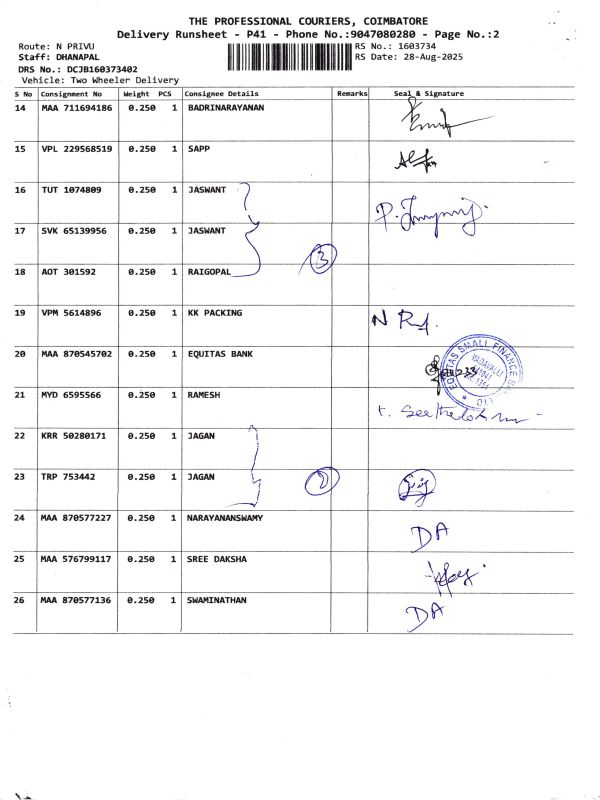 THE PROFESSIONAL COURIERS, COIMBATORE
Delivery Runsheet - P41 - Phone No.:9047080280 - Page No.:2
Route: N PRIVU RS No.: 1603734
Staff: DHANAPAL RS Date: 28-Aug-2025
DRS No.: DCJB160373402
Vehicle: Two Wheeler Delivery
S No Consignment No Weight PCS Consignee Details Remarks Seal & Signature
14 MAA 711694186 0.250 1 BADRINARAYANAN
15 VPL 229568519 0.250 1 SAPP
16 TUT 1074809 0.250 1 JASWANT
17 SVK 65139956 0.250 1 JASWANT
3
18 AOT 301592 0.250 1 RAIGOPAL
19 VPM 5614896 0.250 1 KK PACKING
20 MAA 870545702 0.250 1 EQUITAS BANK
EQUITAS SMALL FINANCE
21 MYD 6595566 0.250 1 RAMESH
22 KRR 50280171 0.250 1 JAGAN
23 TRP 753442 0.250 1 JAGAN 2
24 MAA 870577227 0.250 1 NARAYANANSWAMY DA
25 MAA 576799117 0.250 1 SREE DAKSHA
26 MAA 870577136 0.250 1 SWAMINATHAN DA